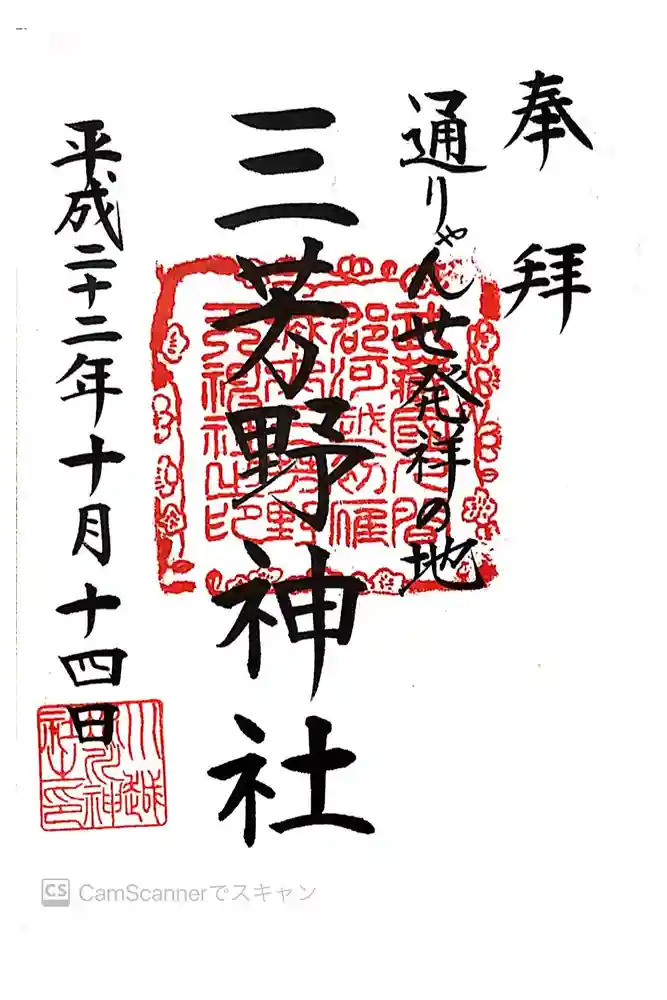 奉拝
通りゃんせ発祥の地
三芳野神社
平成二十二年十月十四日
川越
氷川神
社之印
CS CamScannerでスキャン